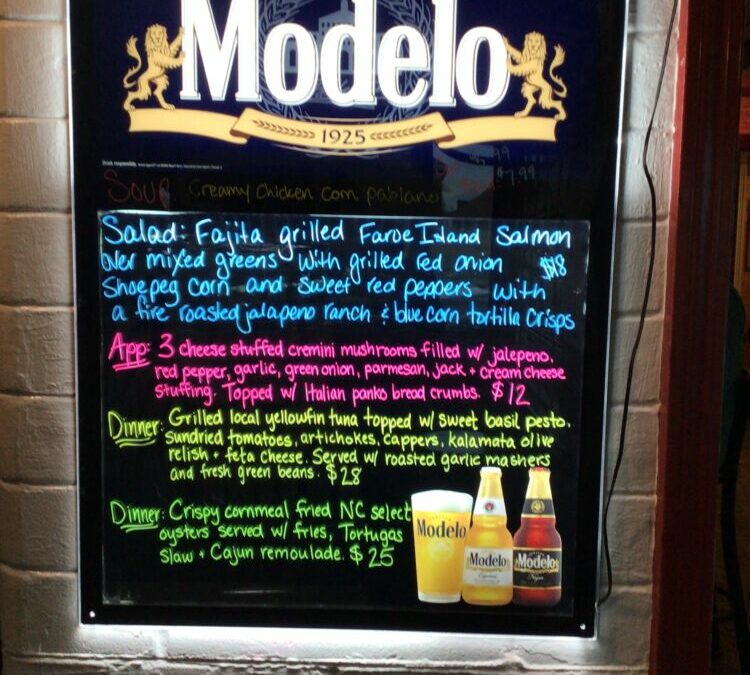 Modelo
1925
Drink responsibly.
$7.99
Soup Creamy chicken corn pablano
Salad: Fajita grilled Faroe Island Salmon
over mixed greens with grilled red onion $18
Shoepeg corn and sweet red peppers with
a fire roasted jalapeno ranch & blue corn tortilla crisps
App: 3 cheese stuffed cremini mushrooms filled w/ jalepeno,
red pepper, garlic, green onion, parmesan, jack + cream cheese
stuffing. Topped w/ Italian panko bread crumbs. $12
Dinner: Grilled local yellowfin tuna topped w/ sweet basil pesto.
sundried tomatoes, artichokes, cappers, kalamata olive
relish + feta cheese. Served w/ roasted garlic mashers
and fresh green beans. $28
Dinner: Crispy cornmeal fried NC select
oysters served w/ fries, Tortugas
slaw + Cajun remoulade. $25
Modelo
Modelo
Especial
Modelo
Negra